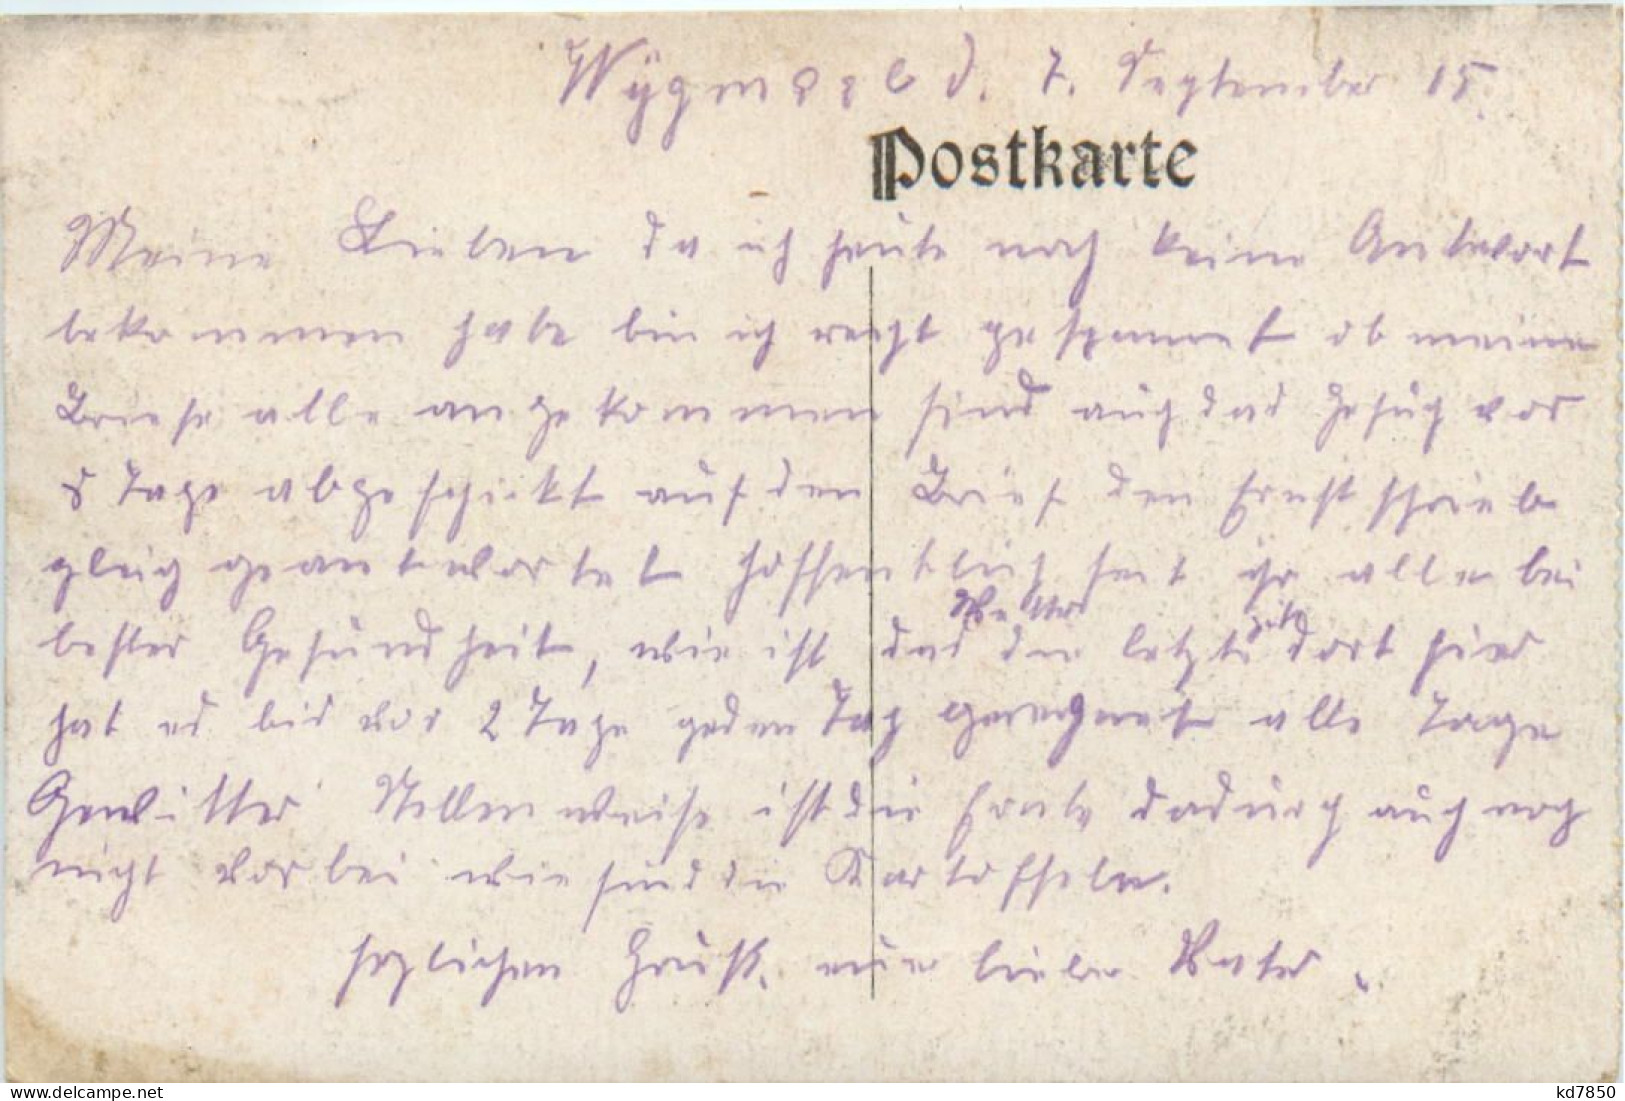 Wygmaal d. 7. September 15.
Postkarte
Meine Lieben da ich heute noch keine Antwort
bekommen habe bin ich recht gespannt ob meine
Briefe alle angekommen sind auch das Gesuch vor
8 Tage abgeschickt auf den Brief den Ernst schrieb
gleich geantwortet hoffentlich seit ihr alle bei
Wetter zeit
bester Gesundheit, wie ist das die letzte dort hier
hat es bis vor 2 Tage jeden Tag geregnet alle Tage
Gewitter Stellenweise ist die Ernte dadurch auch noch
nicht vorbei wie sind die Kartoffeln.
herzlichen Gruß. euer lieber Vater.
www.delcampe.net
kd7850